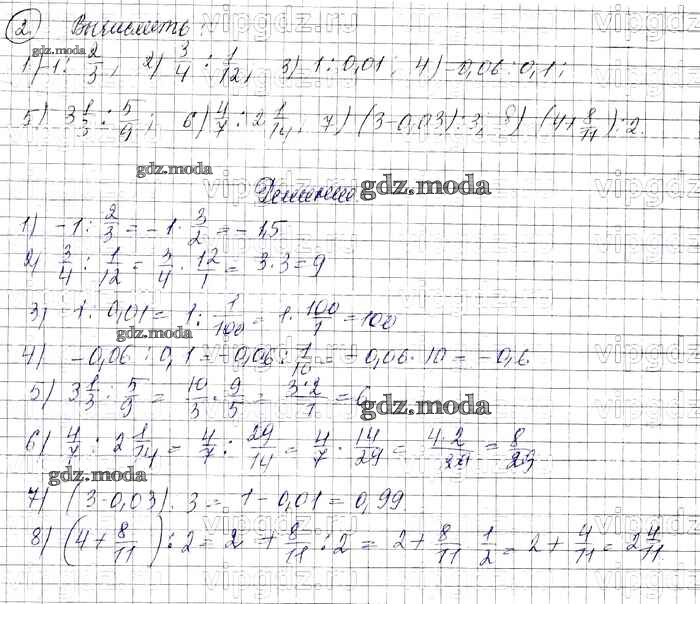 2) Вычислить:
gdz.moda
1) -1 : 2/3; 2) 3/4 : 1/12; 3) 1 : 0,01; 4) -0,06 : 0,1;
5) 3 1/3 : 5/9; 6) 4/7 : 2 1/14; 7) (3-0,03) : 3; 8) (4+8/11) : 2.
gdz.moda
Решение
gdz.moda
1) -1 : 2/3 = -1 · 3/2 = -1,5
2) 3/4 : 1/12 = 3/4 · 12/1 = 3·3 = 9
3) -1 : 0,01 = 1 : 1/100 = 1 · 100/1 = 100
gdz.moda
4) -0,06 : 0,1 = -0,06 : 1/10 = -0,06 · 10 = -0,6
5) 3 1/3 : 5/9 = 10/3 · 9/5 = 3·2/1 = 6
gdz.moda
6) 4/7 : 2 1/14 = 4/7 : 29/14 = 4/7 · 14/29 = 4·2/29 = 8/29
gdz.moda
7) (3-0,03) : 3 = 1-0,01 = 0,99
8) (4+8/11) : 2 = 2 + 8/11 : 2 = 2 + 8/11 · 1/2 = 2 + 4/11 = 2 4/11
vipgdz.ru